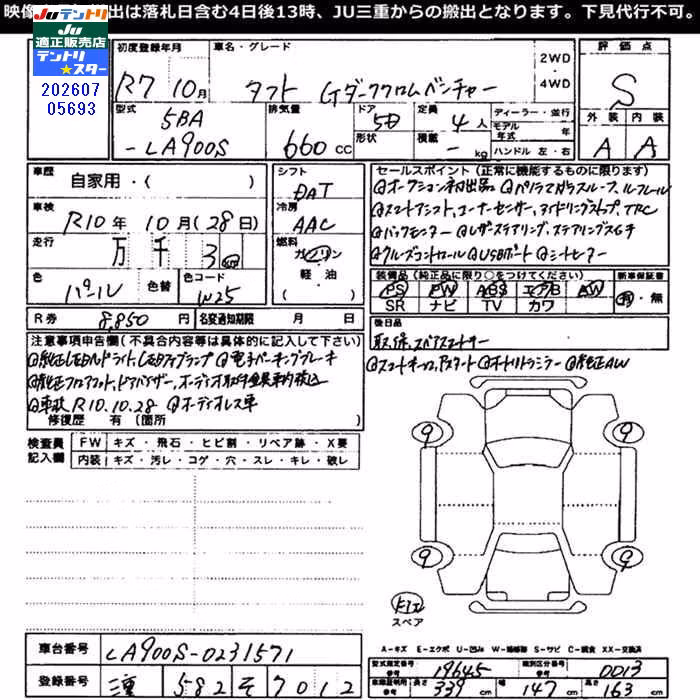 映像 出は落札日含む4日後13時、JU三重からの搬出となります。下見代行不可。
JUテントリ
JU適正販売店
テントリ★スター
202607
05693
初度登録年月
R7 10月
車名・グレード
タフト Gダーククロムベンチャー
2WD
・
4WD
評価点
S
外装 内装
A A
型式
5BA
-LA900S
排気量
660 cc
ドア
5D
形状
定員
4人
積載
- kg
ディーラー・並行
モデル年式 年
ハンドル 左・右
車歴
自家用・( )
車検
R10年 10月(28日)
走行
万 千 3 km
色
パール
色替
色コード
W25
シフト
DAT
冷房
AAC
燃料
ガソリン
軽・油
( )
セールスポイント(正常に機能するものに限ります)
◎オークション初出品 ◎パノラマガラスルーフ、ルーフレール
◎スマートアシスト、コーナーセンサー、アイドリングストップ、TRC
◎バックモニター ◎レザーステアリング、ステアリングスイッチ
◎クルーズコントロール ◎USBポート ◎シートヒーター
装備品(純正品に限り○をつけてください)
PS PW ABS エアB AW
SR ナビ TV カワ
新車保証書
有・無
R券 8,850円
名変通知期限 月 日
後日品
取、保、スペアスマートキー
注意事項申告欄(不具合内容等は具体的に記入して下さい)
◎純正LEDヘッドライト、LEDフォグランプ ◎電子パーキングブレーキ
◎純正フロアマット、ドアバイザー、オーディオ取付金具車内積込
◎車検R10.10.28 ◎オーディオレス車
修復歴 有(箇所
◎スマートキー2ヶ、Pスタート ◎オートリトラミラー ◎純正AW
検査員記入欄
FW キズ・飛石・ヒビ割・リペア跡・X要
内装 キズ・汚レ・コゲ・穴・スレ・キレ・破レ
9 9
9 9
スペア
A-キズ E-エクボ U-凹み W-補修跡 S-サビ C-腐食 XX-交換済
車台番号
LA900S-0231571
登録番号
三重 582 そ 7012
型式指定番号 19645
類別区分番号 0013
車庫証明用 長さ 339cm 幅 147cm 高さ 163cm